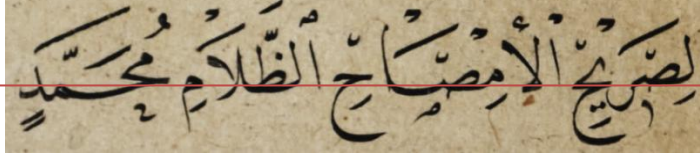 لِصَرِيحِ الْأَمِصْبَاحِ الظَّلَامِ مُحَمَّدٍ